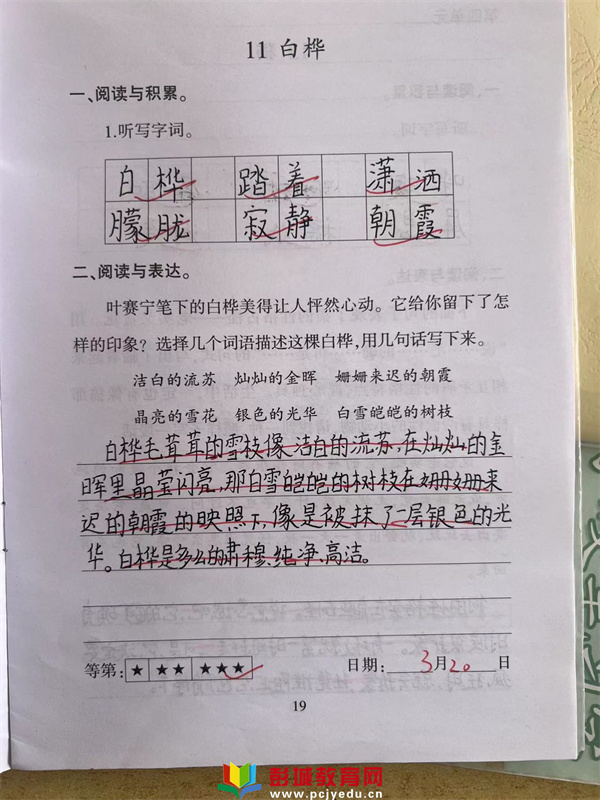 11 白桦
一、阅读与积累。
1.听写字词。
白桦 踏着 潇洒
朦胧 寂静 朝霞
二、阅读与表达。
叶赛宁笔下的白桦美得让人怦然心动。它给你留下了怎
样的印象？选择几个词语描述这棵白桦，用几句话写下来。
洁白的流苏 灿灿的金晖 姗姗来迟的朝霞
晶亮的雪花 银色的光华 白雪皑皑的树枝
白桦毛茸茸的雪枝像洁白的流苏，在灿灿的金
晖里晶莹闪亮，那白雪皑皑的树枝在姗姗来
迟的朝霞的映照下，像是被抹了一层银色的光
华。白桦是多么的肃穆、纯净、高洁。
等第：★ ★★ ★★★ 日期：3月20日
19
彭城教育网
www.pcjyedu.cn